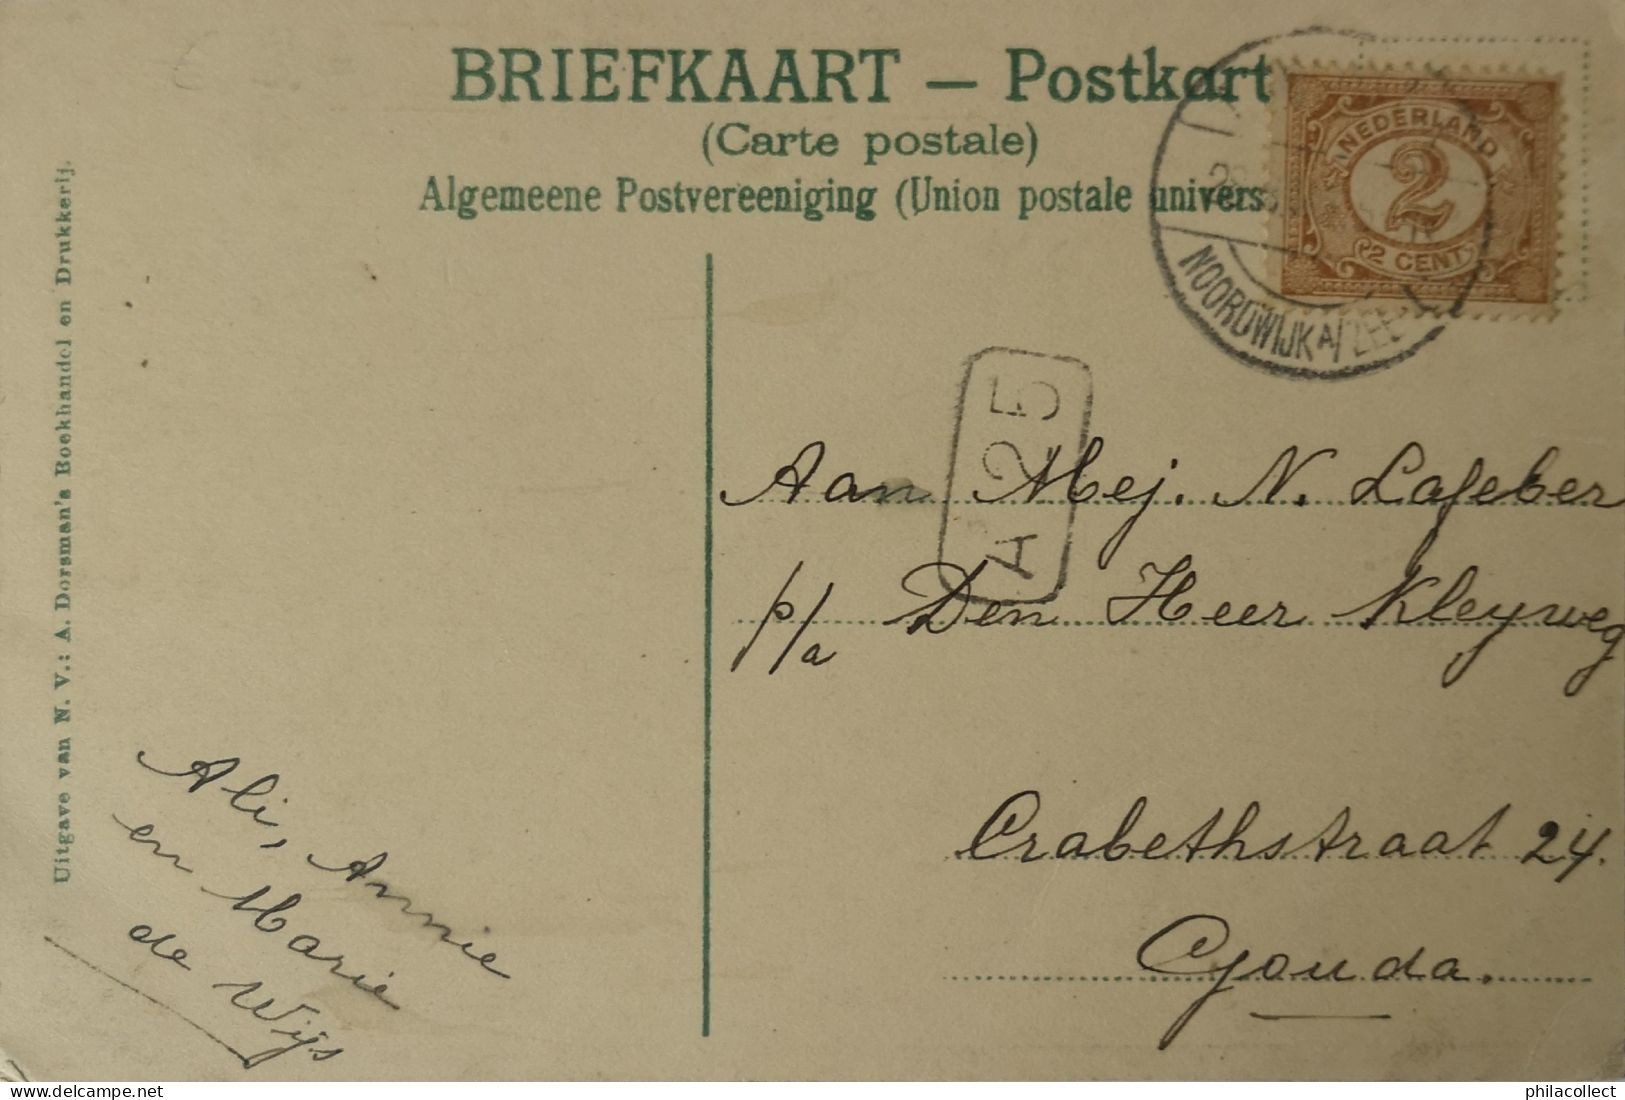 BRIEFKAART — Postkart
(Carte postale)
Algemeene Postvereeniging (Union postale univers
NEDERLAND
2
2 CENT
NOORDWIJK A/ZEE
A 25
Uitgave van N. V.: A. Dorsman's Boekhandel en Drukkerij.
Aan Mej. N. Lafeber
p/a Den Heer Kleyweg
Crabethstraat 24.
Gouda.
Ali, Annie
en Marie
de Wijs
delcampe.net
philacollect